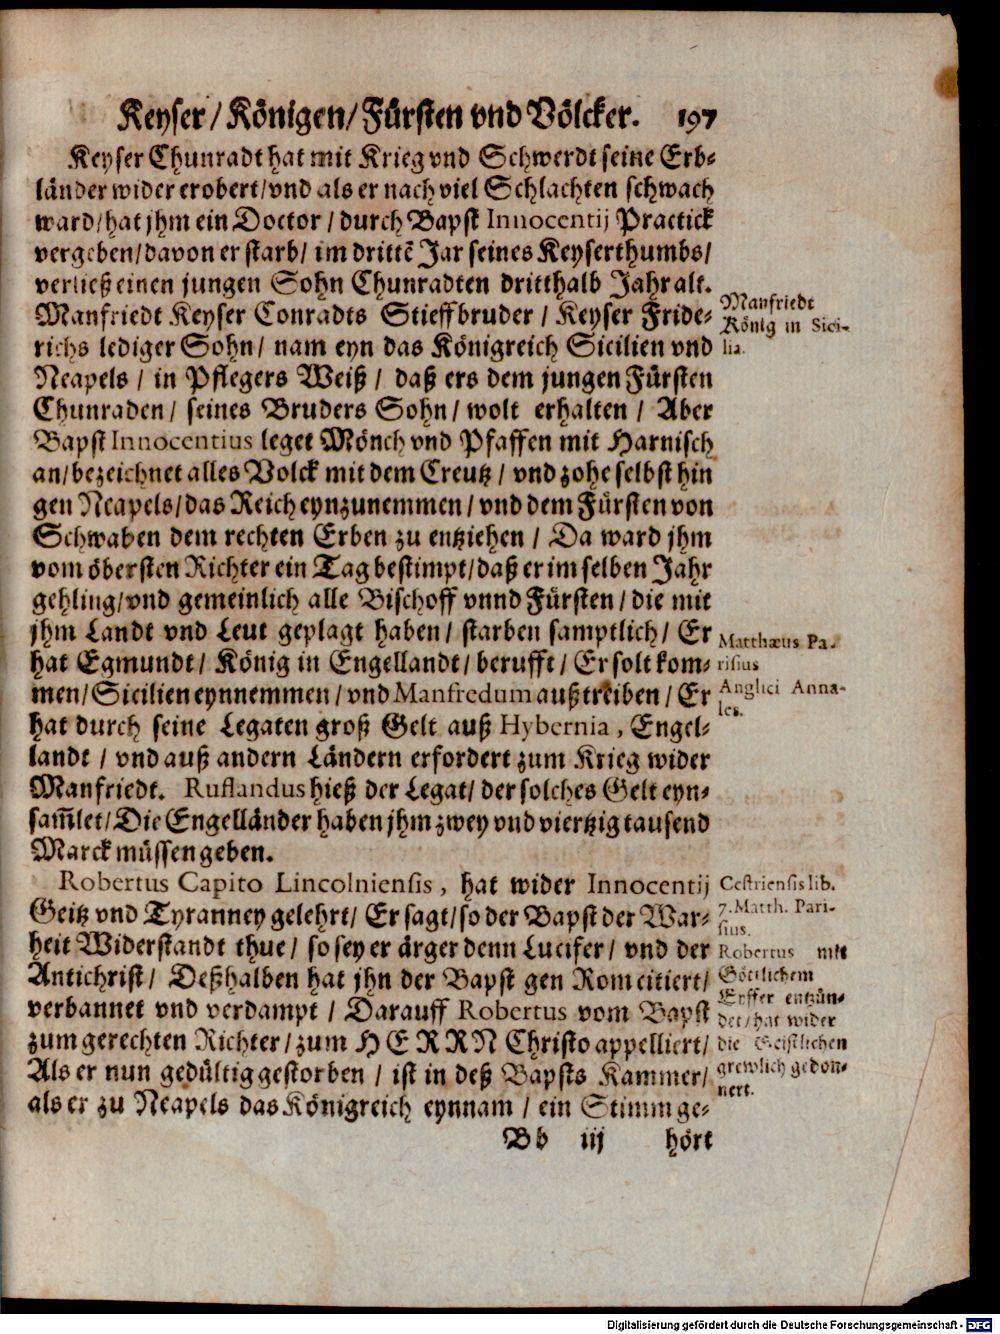 Keyser / Königen / Fürsten vnd Völcker. 197
Keyser Chunradt hat mit Krieg vnd Schwerdt seine Erb-
länder wider erobert / vnd als er nach viel Schlachten schwach
ward / hat jhm ein Doctor / durch Bapst Innocentij Practick
vergeben / davon er starb / im drittē Jar seines Keyserthumbs /
verließ einen jungen Sohn Chunradten dritthalb Jahr alt.
Manfriedt Keyser Conradts Stieffbruder / Keyser Fride-
richs lediger Sohn / nam eyn das Königreich Sicilien vnd
Neapels / in Pflegers Weiß / daß ers dem jungen Fürsten
Chunraden / seines Bruders Sohn / wolt erhalten / Aber
Bapst Innocentius leget Mönch vnd Pfaffen mit Harnisch
an / bezeichnet alles Volck mit dem Creutz / vnd zohe selbst hin
gen Neapels / das Reich eynzunemmen / vnd dem Fürsten von
Schwaben dem rechten Erben zu entziehen / Da ward jhm
vom öbersten Richter ein Tag bestimpt / daß er im selben Jahr
gehling / vnd gemeinlich alle Bischoff vnnd Fürsten / die mit
jhm Landt vnd Leut geplagt haben / starben samptlich / Er
hat Egmundt / König in Engellandt / berufft / Er solt kom-
men / Sicilien eynnemmen / vnd Manfredum außtreiben / Er
hat durch seine Legaten groß Gelt auß Hybernia, Engel-
landt / vnd auß andern Ländern erfordert zum Krieg wider
Manfriedt. Rustandus hieß der Legat / der solches Gelt eyn-
sam̄let / Die Engelländer haben jhm zwey vnd viertzig tausend
Marck müssen geben.
Robertus Capito Lincolniensis, hat wider Innocentij
Geitz vnd Tyranney gelehrt / Er sagt / so der Bapst der War-
heit Widerstandt thue / so sey er ärger denn Lucifer / vnd der
Antichrist / Deßhalben hat jhn der Bapst gen Rom citiert /
verbannet vnd verdampt / Darauff Robertus vom Bapst
zum gerechten Richter / zum HERRN Christo appelliert /
Als er nun gedültig gestorben / ist in deß Bapsts Kammer /
als er zu Neapels das Königreich eynnam / ein Stimm ge-
Bb iij hört
Manfriedt
König in Sici-
lia.
Matthæus Pa-
risius
Anglici Anna-
les.
Cestriensis lib.
7. Matth. Pari-
sius.
Robertus mit
Göttlichem
Eyffer entzün-
det / hat wider
die Geistlichen
grewlich gedon-
nert.
Digitalisierung gefördert durch die Deutsche Forschungsgemeinschaft - DFG